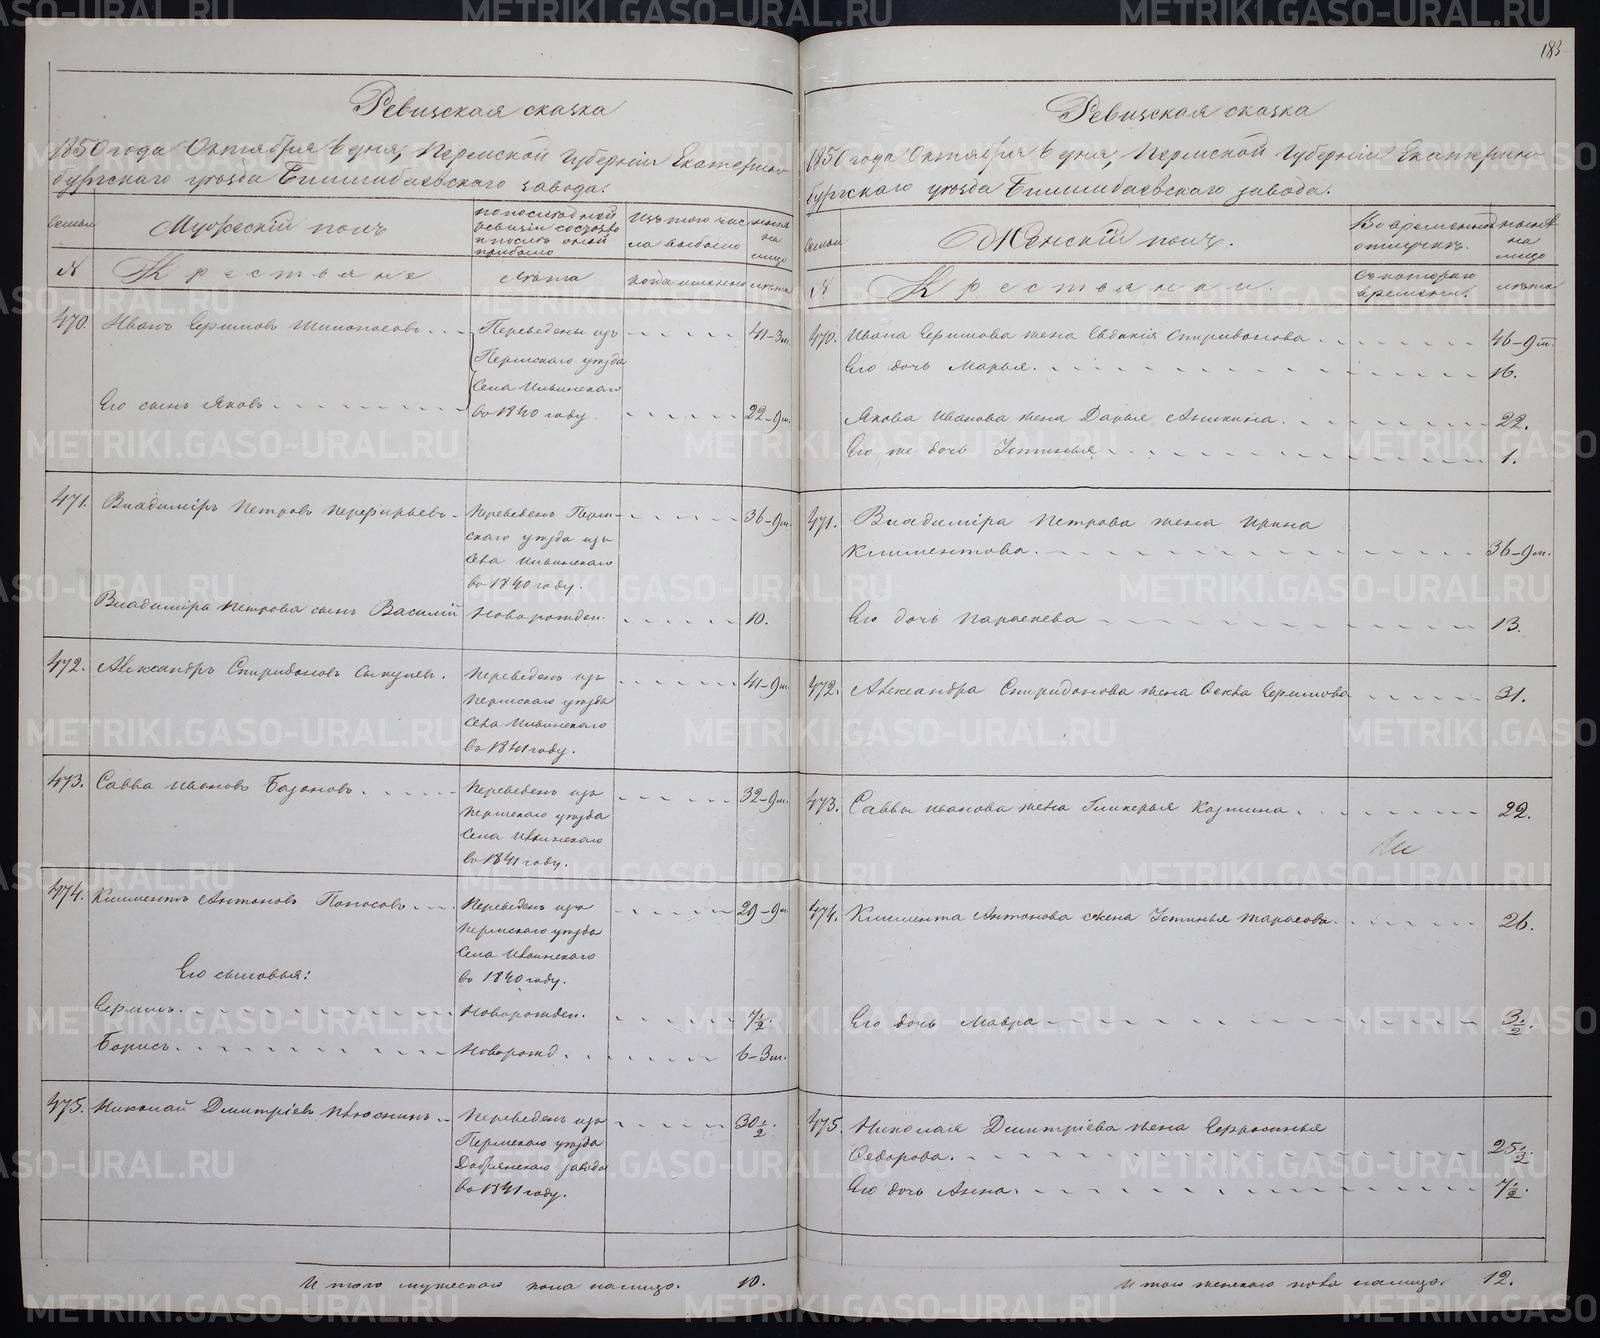 183
Ревизская сказка
1850 года Октября 6 дня, Пермской губерніи Екатерин-
бургскаго уѣзда Билимбаевскаго завода.
семьи
Мужескій полъ
по последней
ревизіи состояло
и после оной
прибыло
Изъ того чис
ла выбыло
ныне
на
лицо
№
Крестьяне
лѣта
когда именно
лѣта
470. Иванъ Ефимовъ
Переведены изъ
41-3м.
Пермскаго уѣзда
Села Ильинскаго
Его сынъ Яковъ
во 1840 году.
22-9м.
471. Владиміръ Петровъ Перфирьевъ
Переведенъ Перм-
36-9м.
скаго уѣзда изъ
Села Ильинскаго
во 1840 году.
Владиміра Петрова сынъ Василій
Новорожден.
10.
472. Александръ Спиридоновъ
Переведенъ изъ
41-9м
Пермскаго уѣзда
Села Ильинскаго
во 1841 году.
473. Савва Ивановъ Базановъ
Переведенъ изъ
32-9м.
Пермскаго уѣзда
Села Ильинскаго
во 1841 году.
474. Климентъ Антоновъ Попосовъ
Переведенъ изъ
29-9м
Пермскаго уѣзда
Села Ильинскаго
Его сыновья:
во 1840 году.
Ефимъ
Новорожден.
7 1/2.
Борисъ
Новорожд
6-3м.
475. Николай Дмитріевъ Плюснинъ
Переведенъ изъ
30 1/2.
Пермскаго уѣзда
Добрянскаго завода
во 1841 году.
И того мужескаго пола налицо. 10.
Ревизская сказка
1850 года Октября 6 дня, Пермской губерніи Екатерин-
бургскаго уѣзда Билимбаевскаго завода.
семьи
Женскій полъ.
Во временной
отлучкѣ.
ныне
на
лицо
№
Крестьянки.
съ котораго
времени.
лѣта
470. Ивана Ефимова жена Евдокія Спиридонова
46-9м.
Его дочь Марья.
16.
Якова Иванова жена Дарья Аникина.
22.
Его же дочь Устинья
1.
471. Владиміра Петрова жена Ирина
Климентова.
36-9м.
Его дочь Парасковья
13.
472. Александра Спиридонова жена Фекла Ефимова
31.
473. Саввы Иванова жена Гликерья Козмина
22.
474. Климента Антонова жена Устинья Тарасова.
26.
Его дочь Мавра
3 1/2.
475. Николая Дмитріева жена Евфросинья
Федорова.
25 1/2.
Его дочь Анна.
7 1/2.
И того женскаго пола налицо. 12.
METRIKI.GASO-URAL.RU